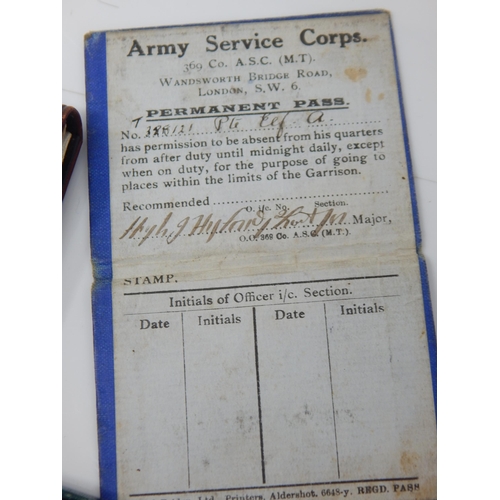 Army Service Corps.
369 Co. A.S.C. (M.T.).
Wandsworth Bridge Road,
London, S.W. 6.
PERMANENT PASS.
T
No. Pte A.
has permission to be absent from his quarters
from after duty until midnight daily, except
when on duty, for the purpose of going to
places within the limits of the Garrison.
Recommended
O. i/c. No. Section.
Major,
O.C. 369 Co. A.S.C. (M.T.).
STAMP.
Initials of Officer i/c. Section.
Date Initials Date Initials
Ltd., Printers, Aldershot. 6648-y. REGD. PASS